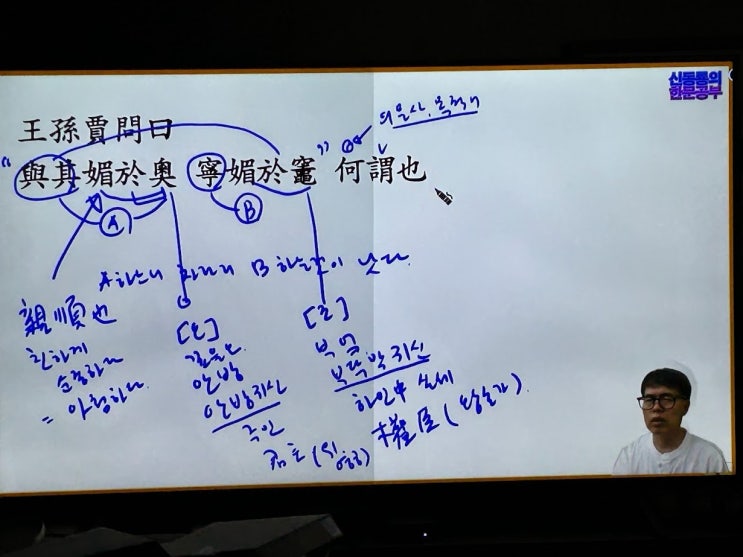 신동뽈의
한문공부
의문사, 목적어
王孫賈問曰
"與其媚於奧 寧媚於竈" 何謂也
A B
A 하느니 차라리 B 하는 것이 낫다.
親順也
친하게
순종하다
= 아첨하다.
[오]
깊을 오
안방
안방귀신
주인
[조]
부엌
부뚜막 귀신
하인中 실세
權臣